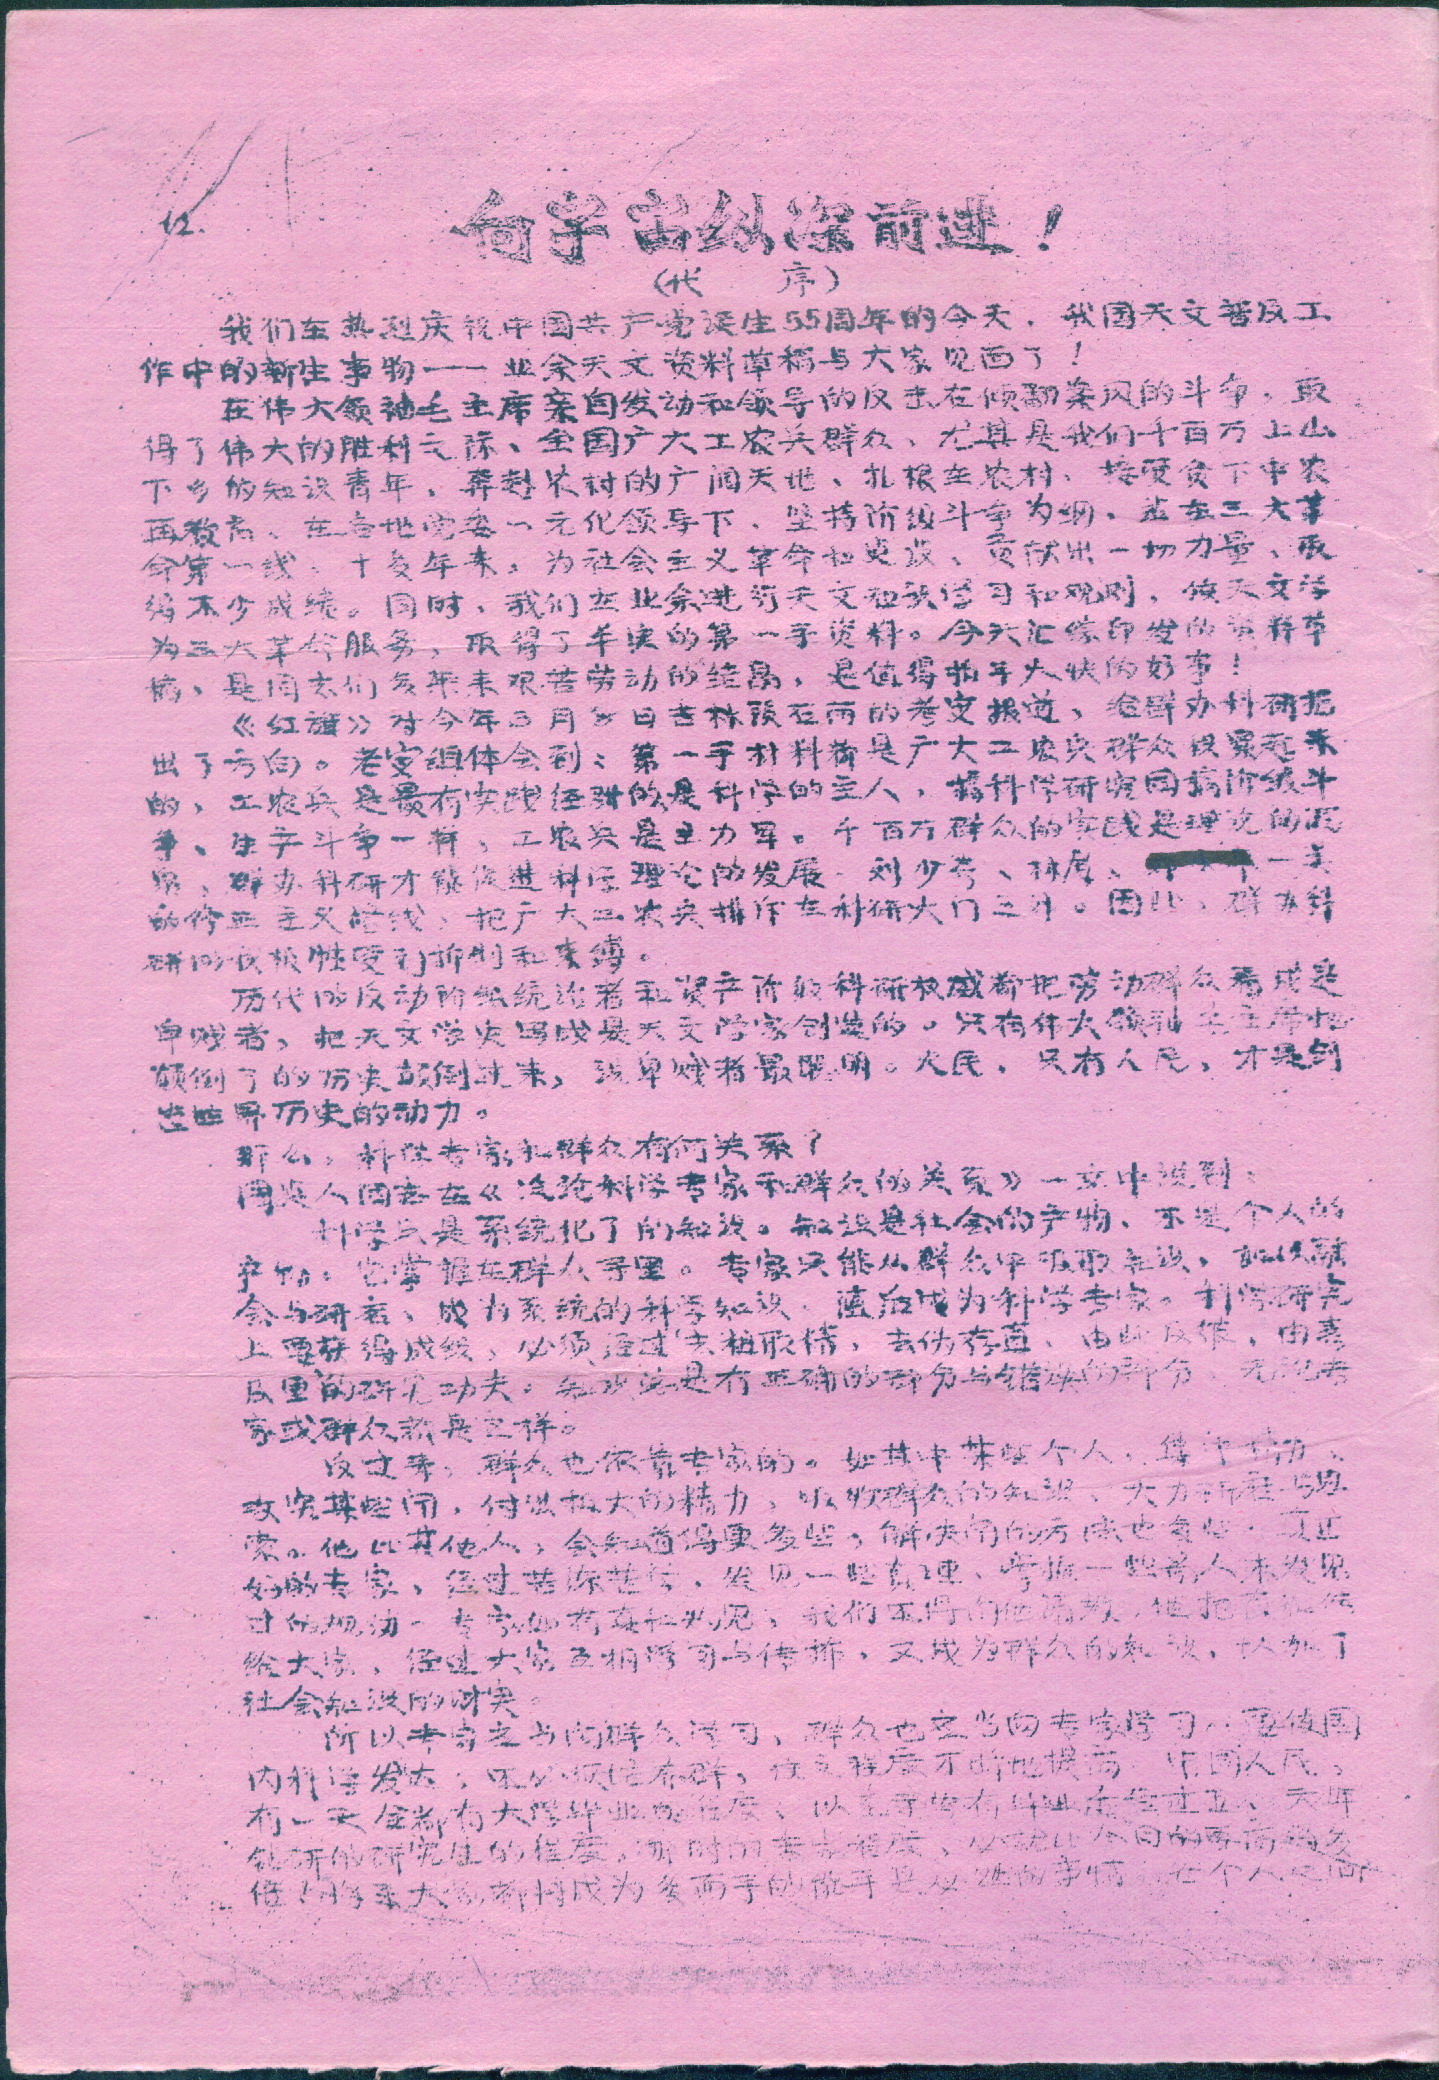 12.
向宇宙纵深前进！
（代 序）
我们在热烈庆祝中国共产党诞生55周年的今天，我国天文普及工
作中的新生事物——业余天文资料草稿与大家见面了！
在伟大领袖毛主席亲自发动和领导的反击右倾翻案风的斗争，取
得了伟大的胜利之际、全国广大工农兵群众、尤其是我们千百万上山
下乡的知识青年，奔赴农村的广阔天地、扎根在农村、接受贫下中农
再教育、在当地党委一元化领导下、坚持阶级斗争为纲，站在三大革
命第一线，十多年来，为社会主义革命和建设、贡献出一切力量、取
得不少成绩。同时、我们在业余进行天文知识学习和观测，使天文学
为三大革命服务，取得了丰实的第一手资料。今天汇综印发的资料草
稿、是同志们多年来艰苦劳动的结晶，是值得拍手大快的好事！
《红旗》对今年三月8日吉林陨石雨的考察报道，给群办科研指
出了方向。考察组体会到：第一手材料都是广大工农兵群众积累起来
的，工农兵是最有实践经验的是科学的主人，搞科学研究同搞阶级斗
争、生产斗争一样，工农兵是主力军。千百万群众的实践是理论的源
泉，群办科研才能促进科学理论的发展。刘少奇、林彪、 一类
的修正主义路线，把广大工农兵排斥在科研大门之外。因此，群办科
研的积极性受到抑制和束缚。
历代的反动阶级统治者和资产阶级科研权威都把劳动群众看成是
卑贱者，把天文学史写成是天文学家创造的。只有伟大领袖毛主席把
颠倒了的历史颠倒过来，说卑贱者最聪明。人民，只有人民，才是创
造世界历史的动力。
那么，科学专家和群众有何关系？
同志在《泛论科学专家和群众的关系》一文中谈到：
科学只是系统化了的知识。知识是社会的产物、不是个人的
产物。它掌握在群众手里。专家只能从群众中汲取知识，加以融
会与研究、成为系统的科学知识，随后成为科学专家。科学研究
上要获得成绩，必须经过去粗取精，去伪存真，由此及彼，由表
及里的研究功夫。知识总是有正确的部分与错误的部分，无论专
家或群众都是这样。
反过来，群众也依靠专家的。如其中某些个人，集中精力、
攻究某些问，付出极大的精力，吸收群众的知识、大力研究与思
索。他比其他人，会知道得更多些，解决问的方法也多些。真正
好的专家，经过苦深苦钻，发见一些真理、掌握一些前人未发见
过的规动。专家如有真知灼见，我们不得向他请教，他把真知传
给大家，经过大家互相学习与传播，又成为群众的知识，增加了
社会知识的财实。
所以专家应当向群众学习，群众也应当向专家学习，要使国
内科学发达，
有一天全都有大学毕业的程度，
钻研的研究生的程度，那时的专家程度，